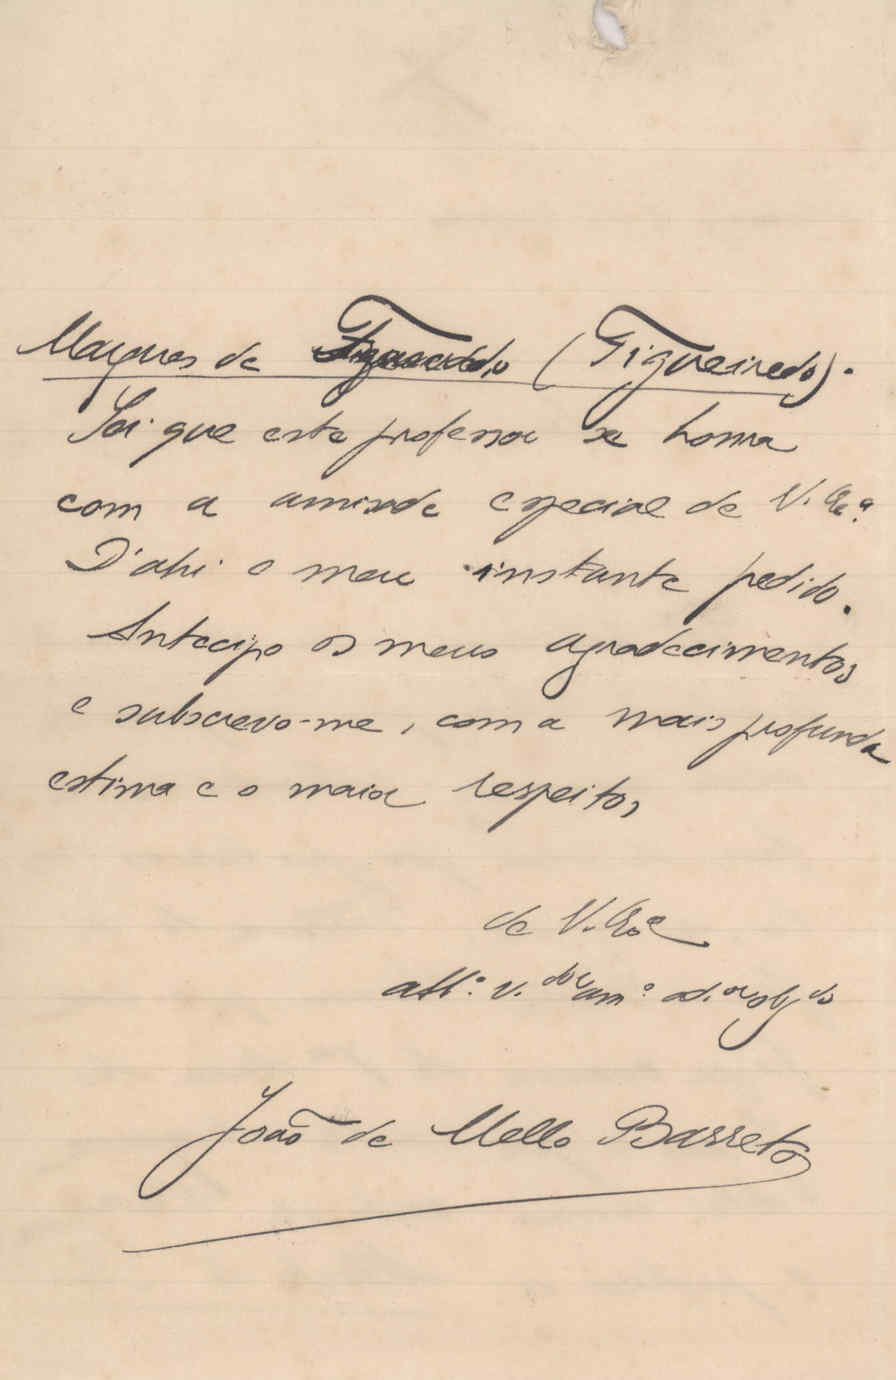 Marques de Figueiredo (Figueiredo).
Sei que este professor se honra
com a amisade especial de V. Ex.ª
D'ahi o meu instante pedido.
Antecipo os meus agradecimentos
e subscrevo-me, com a mais profunda
estima e o maior respeito,
de V. Ex.ª
att.º v.dor am.º ad.or obg.do
João de Mello Barreto